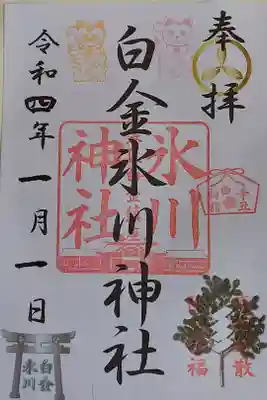 奉拝
白金氷川神社
令和四年一月一日
氷川
神社
白金
氷川
散
福